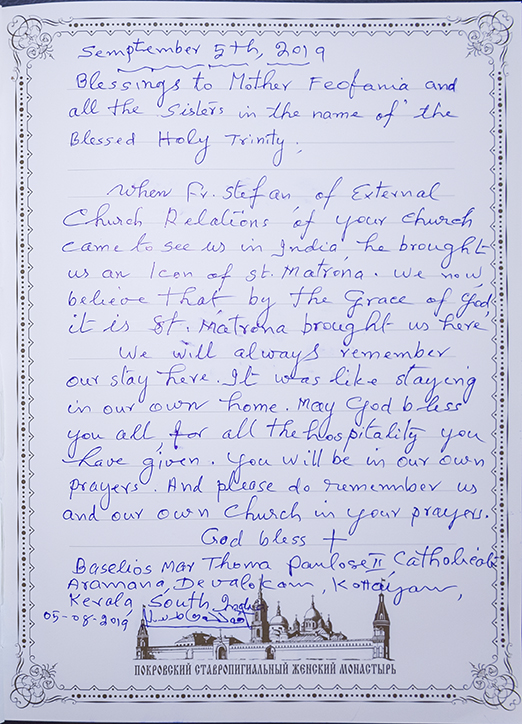 Semptember 5th, 2019
Blessings to Mother Feofania and
all the Sisters in the name of the
Blessed Holy Trinity.
When Fr. Stefan, of External
Church Relations of your church
came to see us in India, he brought
us an Icon of St. Matrona. We now
believe that by the Grace of God,
it is St. Matrona brought us here
We will always remember
our stay here. It was like staying
in our own home. May God bless
you all, for all the hospitality you
have given. You will be in our own
prayers. And please do rememnber us
and our own Church in your prayers.
God bless +
Baselios Mar Thoma Paulose II Catholicate
Aramana, Devalokam, Kottayam,
Kerala, South India
05-08-2019
ПОКРОВСКИЙ СТАВРОПИГИАЛЬНЫЙ ЖЕНСКИЙ МОНАСТЫРЬ